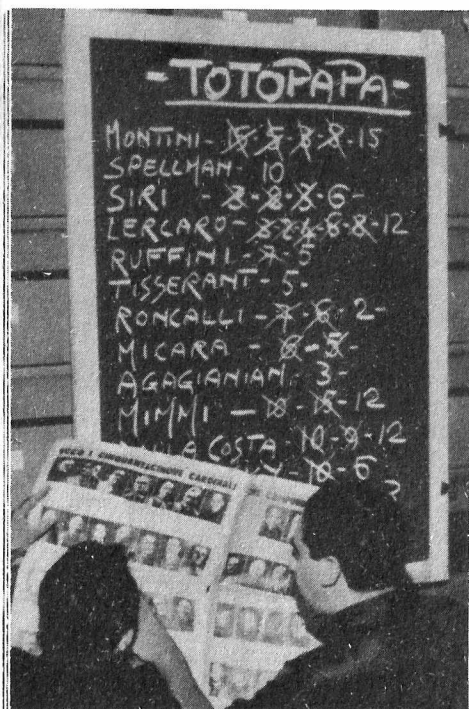 - TOTOPAPA -
MONTINI - 5 - 5 - 8 - 8 - 15
SPELLMAN - 10
SIRI - 8 - 8 - 6 -
LERCARO - 6 - 8 - 12
RUFFINI - 7 - 5
TISSERANT - 5 -
RONCALLI - 7 - 6 - 2 -
MICARA - 6 - 5 -
AGAGIANIAN - 3 -
MIMMI - 10 - 15 - 12
COSTA - 10 - 9 - 12
10 - 6
ECCO I CARDINALI